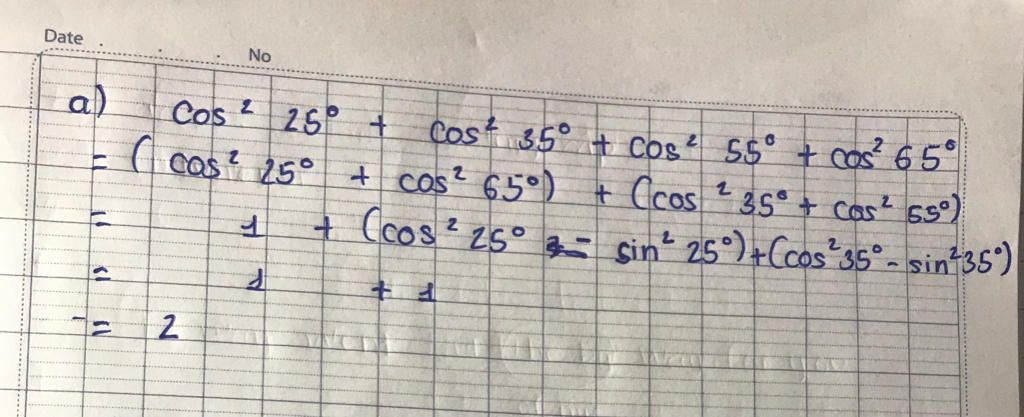 Date . . . No
a) cos² 25° + cos² 35° + cos² 55° + cos² 65°
= ( cos² 25° + cos² 65°) + (cos² 35° + cos² 55°)
= 1 + (cos² 25° - sin² 25°) + (cos² 35° - sin² 35°)
= 1 + 1
= 2